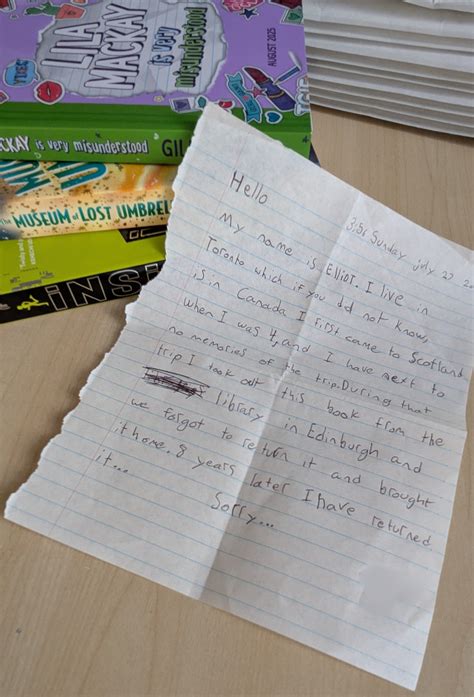 LILA
MACKAY
is very
misunderstood
AUGUST 2025
MACKAY is very misunderstood GIL
THE MUSEUM of LOST UMBREL
INS
3:56 Sunday july 27
Hello
My name is Elliot. I live in
Toronto which if you did not know,
is in Canada I first came to Scotland
when I was 4, and I have next to
no memories of the trip. During that
trip I took out this book from the
library in Edinburgh and
we forgot to return it and brought
it home. 8 years later I have returned
it...
Sorry...